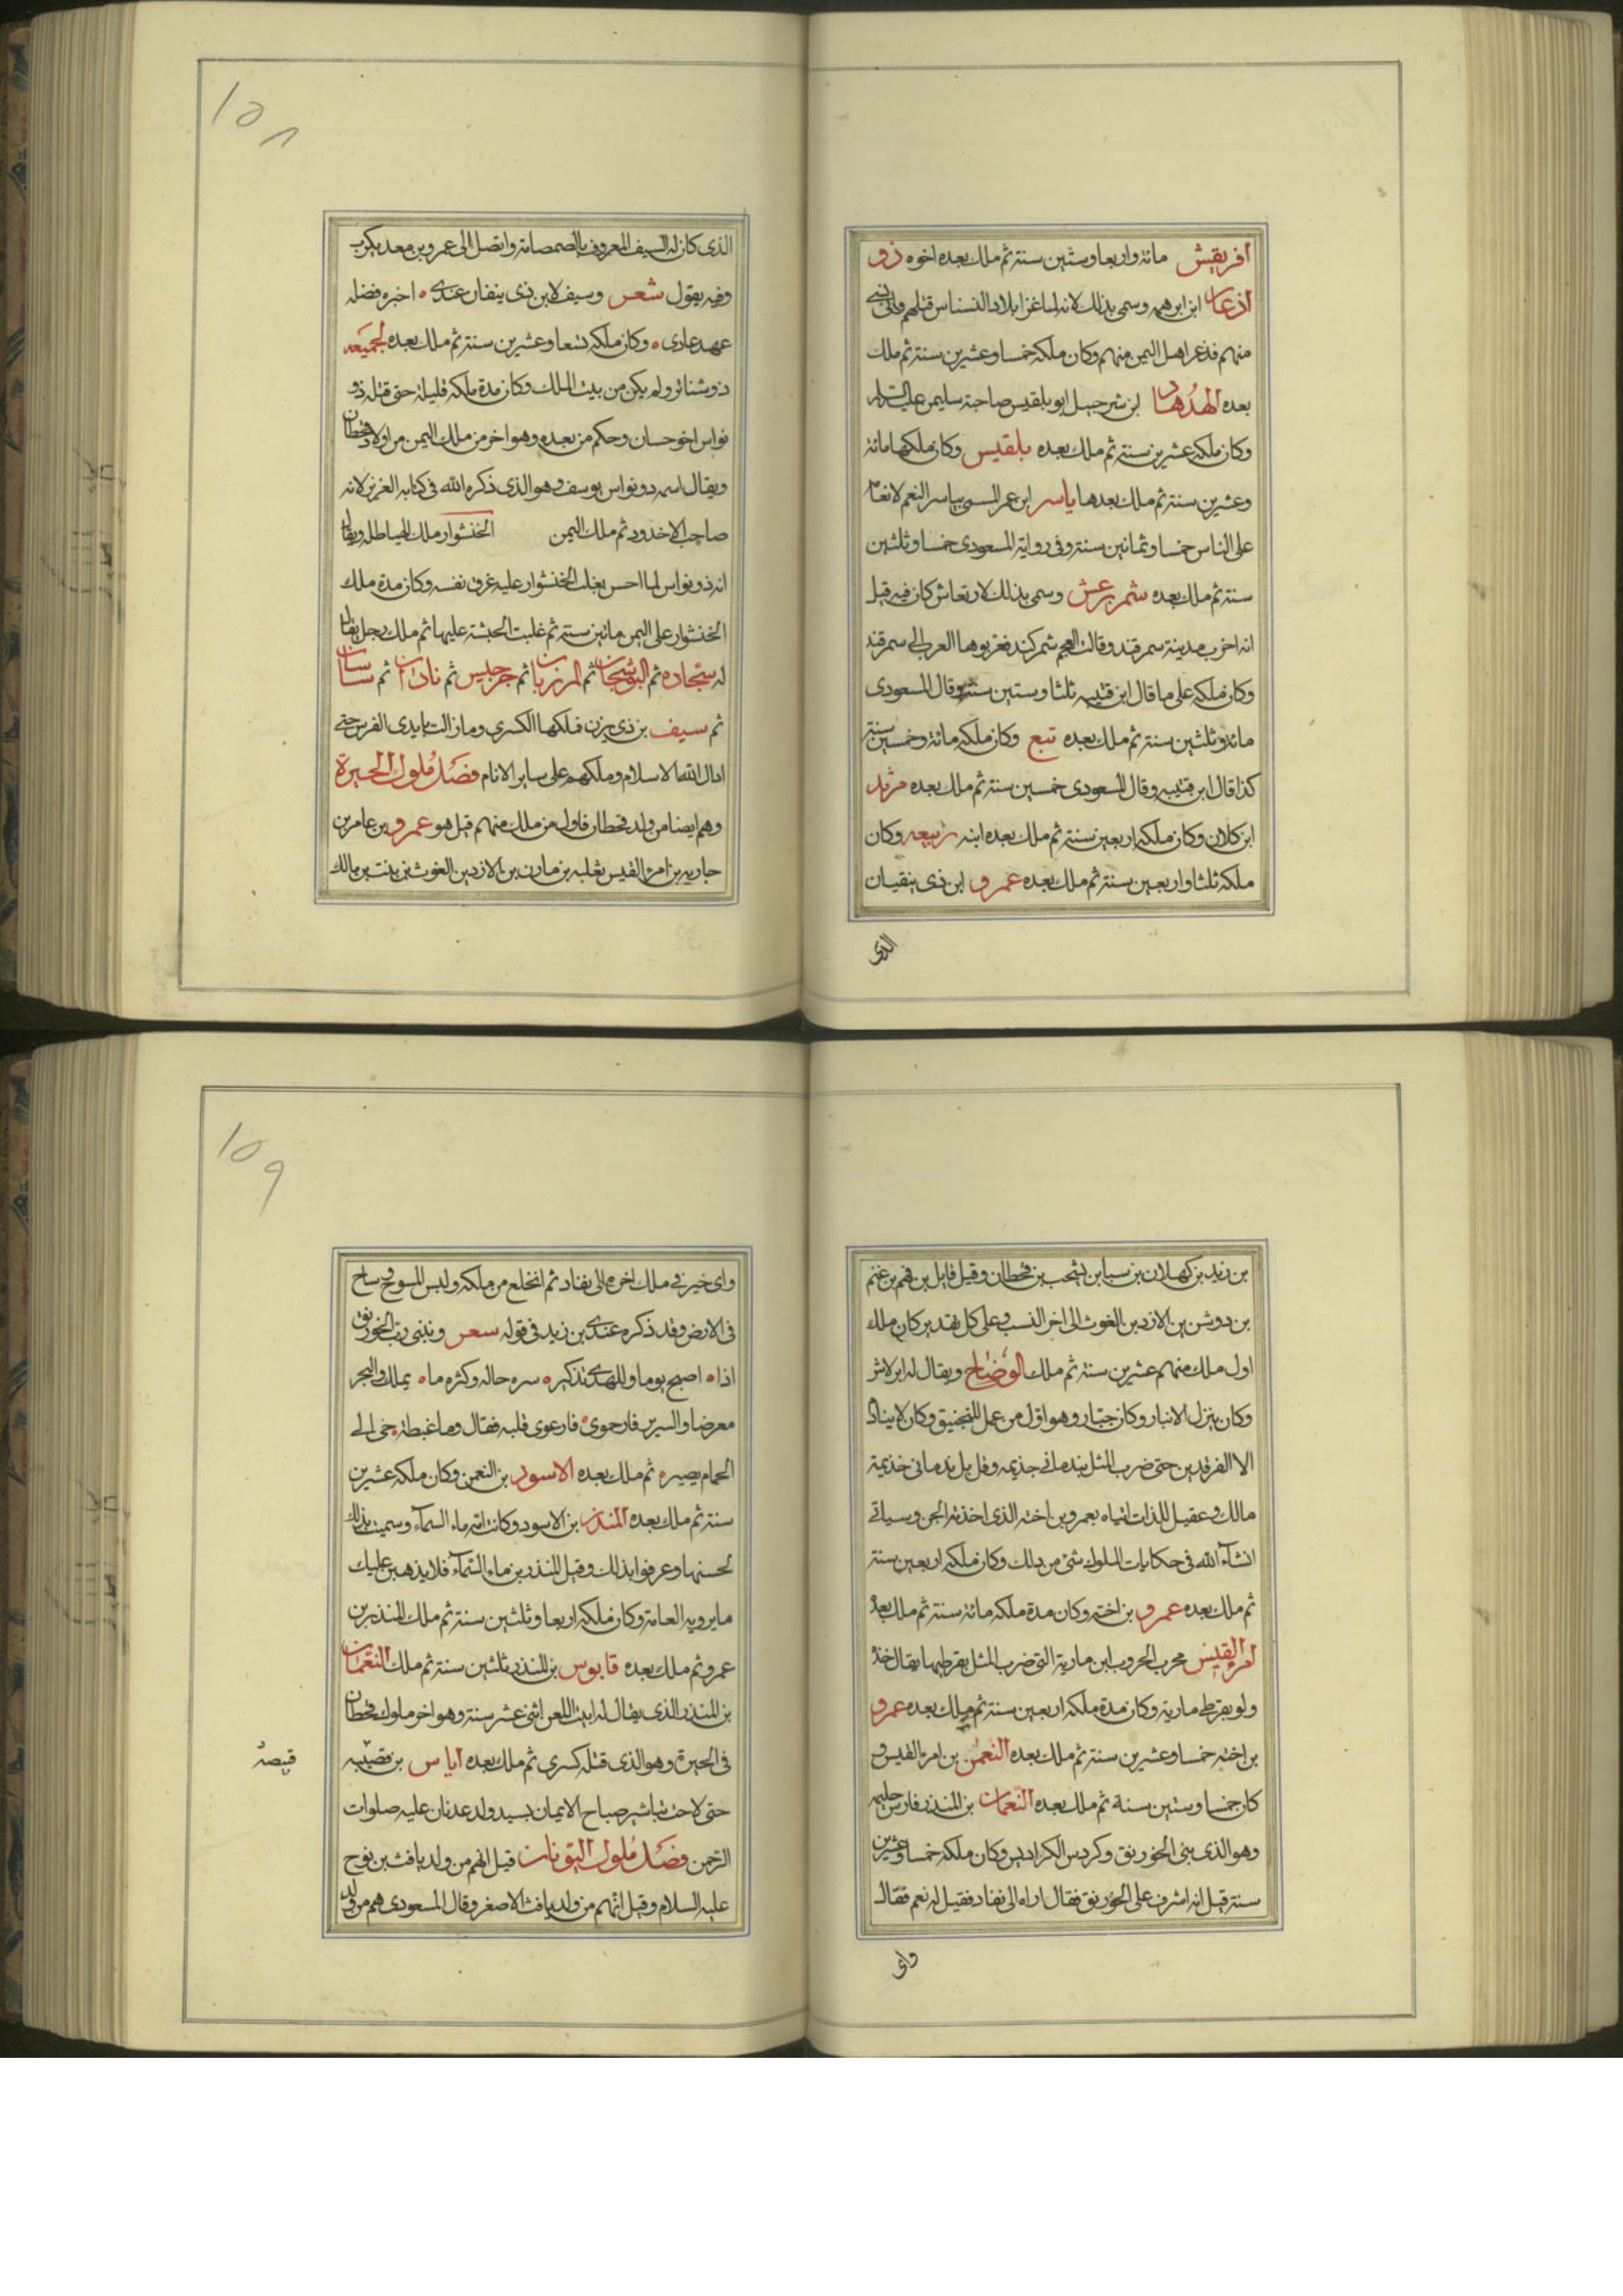 افريقيش مائة واربعا وستين سنة ثم ملك بعده اخوه ذو
اذعار ابن ابرهه وسمى بذلك لانه لما غزا بلاد النسناس قتلهم واتى بسبى
منهم فذعر اهل اليمن منهم وكان ملكه خمسا وعشرين سنة ثم ملك
بعده الهدهاد ابن شرحبيل ابو بلقيس صاحبة سليمن عليه السلام
وكان ملكه عشرين سنة ثم ملك بعده بلقيس وكان ملكها مائة
وعشرين سنة ثم ملك بعدها ياسر ابن عمر المسمى بياسر النعم لانعامه
على الناس خمسا وثمانين سنة وفى رواية المسعودى خمسا وثلثين
سنة ثم ملك بعده شمر يرعش وسمى بذلك لارتعاش كان فيه قيل
انه اخرب مدينة سمرقند وقالت العجم شمركند فعربوها العرب الى سمرقند
وكان ملكه على ما قال ابن قتيبه ثلثا وستين سنة وقال المسعودى
مائة وثلثين سنة ثم ملك بعده تبع وكان ملكه مائة وخمسين سنة
كذا قال ابن قتيبه وقال المسعودى خمسين سنة ثم ملك بعده مرثد
ابن كلان وكان ملكه اربعين سنة ثم ملك بعده ابنه ربيعه وكان
ملكه ثلثا واربعين سنة ثم ملك بعده عمرو ابن ذى ينقيان
الذى
١٥٨
الذى كان له السيف المعروف بالصمصامة واتصل الى عمرو بن معديكرب
وفيه يقول شعر وسيف لابن ذى ينفان عندى ٥ اخبره فضله
عهد عادى ٥ وكان ملكه تسعا وعشرين سنة ثم ملك بعده لجميعه
ذو شناتر ولم يكن من بيت الملك وكان مدة ملكه قليلة حتى قتله ذو
نواس اخو حسان وحكم من بعده وهو اخر من ملك اليمن من اولاد قحطان
ويقال اسمه ذو نواس يوسف وهو الذى ذكره الله فى كتابه العزيز لانه
صاحب الاخدود ثم ملك اليمن الخنشوار ملك الهياطله ويقال
ان ذو نواس لما احس بغلب الخنشوار عليه غرق نفسه وكان مدة ملك
الخنشوار على اليمن مائتين سنة ثم غلبت الحبشة عليها ثم ملك رجل يقال
له ستجاده ثم النوشجان ثم المرزبان ثم جرجيس ثم نادان ثم ساسان
ثم سيف بن ذى يزن فملكها الكسرى وما زالت بايدى الفرس حتى
ادال الله الاسلام وملكهم على ساير الانام فصل ملوك الحيرة
وهم ايضا من ولد قحطان فاول من ملك منهم قيل هو عمرو بن عامر بن
حاريه بن امرئ القيس بن ثعلبه بن مازن بن الازد بن الغوث بن بنت بن مالك
بن زيد بن كهلان بن سبا بن يشجب بن قحطان وقيل قابل بن فهم بن غنم
بن دوس بن الازد بن الغوث الى اخر النسب وعلى كل تقدير كان ملك
اول ملك منهم عشرين سنة ثم ملك الوضاح ويقال له ابرلاش
وكان ينزل الانبار وكان جبار وهو اول من عمل المنجنيق وكان لا ينادم
الا الفرقدين حتى ضرب المثل بندمانى جذيمه وقل بل ندمانى خذيمة
مالك وعقيل اللذان اتياه بعمرو بن اخته الذى اخذته الجن وسياتى
انشآء الله فى حكايات الملوك شئ من ذلك وكان ملكه اربعين سنة
ثم ملك بعده عمرو بن اخته وكان مدة ملكه مائة سنة ثم ملك بعد
امرؤ القيس محرب الحروب ابن مارية التى ضرب المثل بقرطيها يقال خذه
ولو بقرطى مارية وكان مدة ملكه اربعين سنة ثم ملك بعده عمرو
بن اخته خمسا وعشرين سنة ثم ملك بعده النعمن بن امرئ القيس و
كان خمسا وستين سنة ثم ملك بعده النعمان بن المنذر فارس حليمه
وهو الذى بنى الخورنق وكردس الكراديس وكان ملكه خمسا وعشرين
سنة قيل انه اشرف على الخورنق فقال اراه الى نفاد فقيل له نعم فقال
واى
١٥٩
واى خير فى ملك اخره الى نفاد ثم انخلع من ملكه ولبس المسوح وساح
فى الارض وقد ذكره عندى بن زيد فى قوله سعر وتبنى رب الخورنق
اذا ٥ اصبح يوما وللهدى تذكيره سره حاله وكثره ما ٥ يملك والبحر
معرضا والسرير فارحموى ٥ فارعوى قلبه فقال وما غبطة حى الى
الحمام يصيره ثم ملك بعده الاسود بن النعمن وكان ملكه عشرين
سنة ثم ملك بعده المنذر بن الاسود وكانت امه ماء السمآء وسميت بذلك
لحسنها وعرفوا بذلك وقيل المنذر بن ماء السمآء فلا يذهبن عليك
ما يرويه العامة وكان ملكه اربعا وثلثين سنة ثم ملك المنذر بن
عمرو ثم ملك بعده قابوس بن المنذر ثلثين سنة ثم ملك النعمان
بن المنذر الذى يقال له ابيت اللعن اثنى عشر سنة وهو اخر ملوك قحطان
فى الحيرة وهو الذى قتله كسرى ثم ملك بعده اياس بن قصيبه
قبيصة
حتى لاحت تباشير صباح الايمان بسيد ولد عدنان عليه صلوات
الرحمن فصل ملوك اليونان قيل انهم من ولد يافث بن نوح
عليه السلام وقيل انهم من ولد يافث الاصغر وقال المسعودى هم من ولد